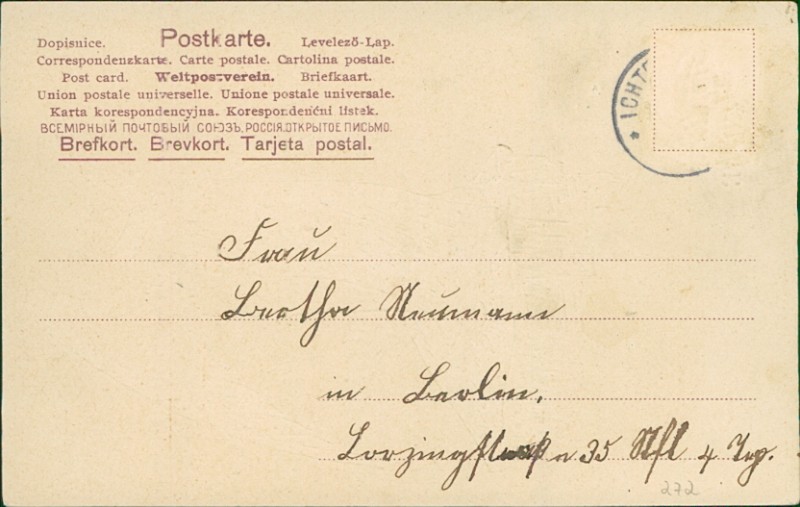 Dopisnice. Postkarte. Levelező-Lap.
Correspondenzkarte. Carte postale. Cartolina postale.
Post card. Weltpostverein. Briefkaart.
Union postale universelle. Unione postale universale.
Karta korespondencyjna. Korespondenční lístek.
ВСЕМІРНЫЙ ПОЧТОВЫЙ СОЮЗЪ, РОССІЯ. ОТКРЫТОЕ ПИСЬМО.
Brefkort. Brevkort. Tarjeta postal.
* ICHT
Frau
Bertha Neumann
in Berlin.
35 4 Trp.
272